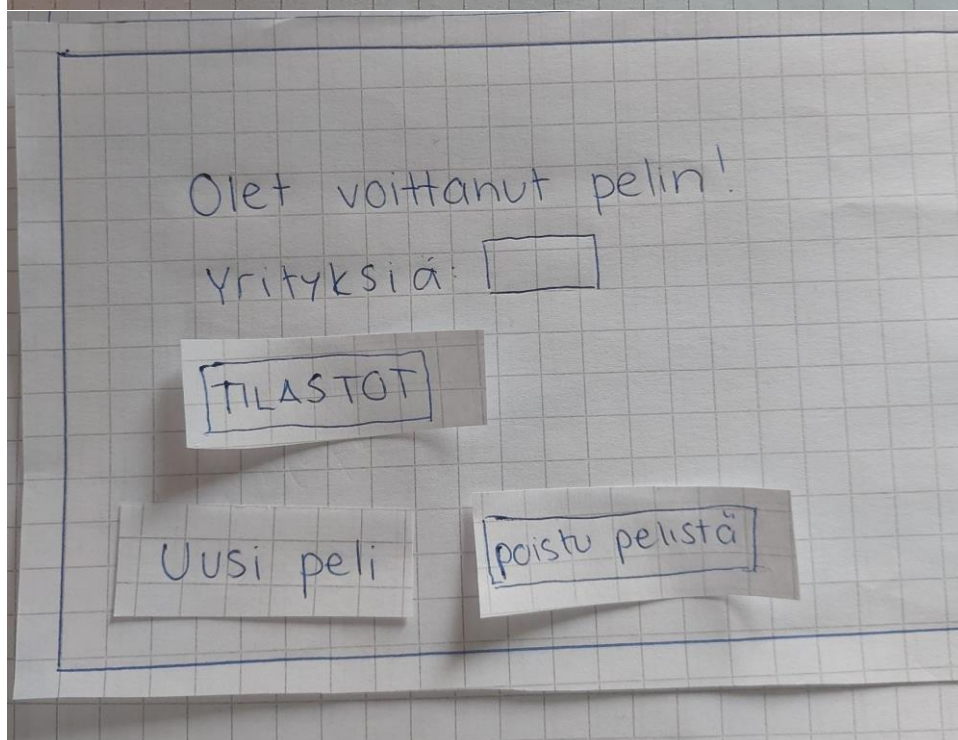 Olet voittanut pelin!
Yrityksiä:
TILASTOT
Uusi peli
poistu pelistä